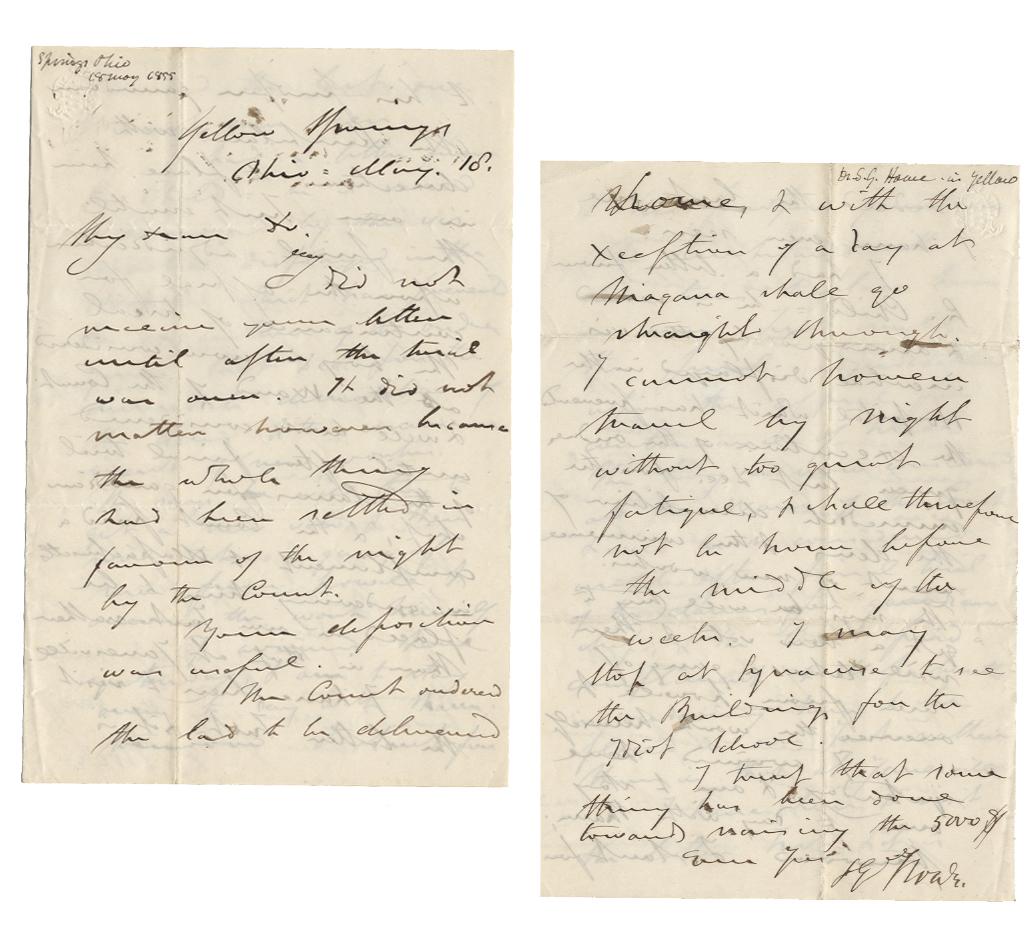 Springs Ohio
18 May 1855
Yellow Springs
Ohio = May. 18.
My
did not
receive your letter
until after the trial
was over. It did not
matter however because
the whole thing
had been settled in
favour of the right
by the Court.
Your deposition
was useful.
The Court ordered
the lad to be delivered
Dr S.G. Howe - in Yellow
home, & with the
xception of a day at
Niagara shall go
straight through.
I cannot however
travel by night
without too great
fatigue, & shall therefore
not be home before
the middle of the
week. I may
stop at Syracuse to see
the Buildings for the
Idiot School.
I trust that some
thing has been done
towards raising the 5000 $
Ever Yrs
S G Howe.